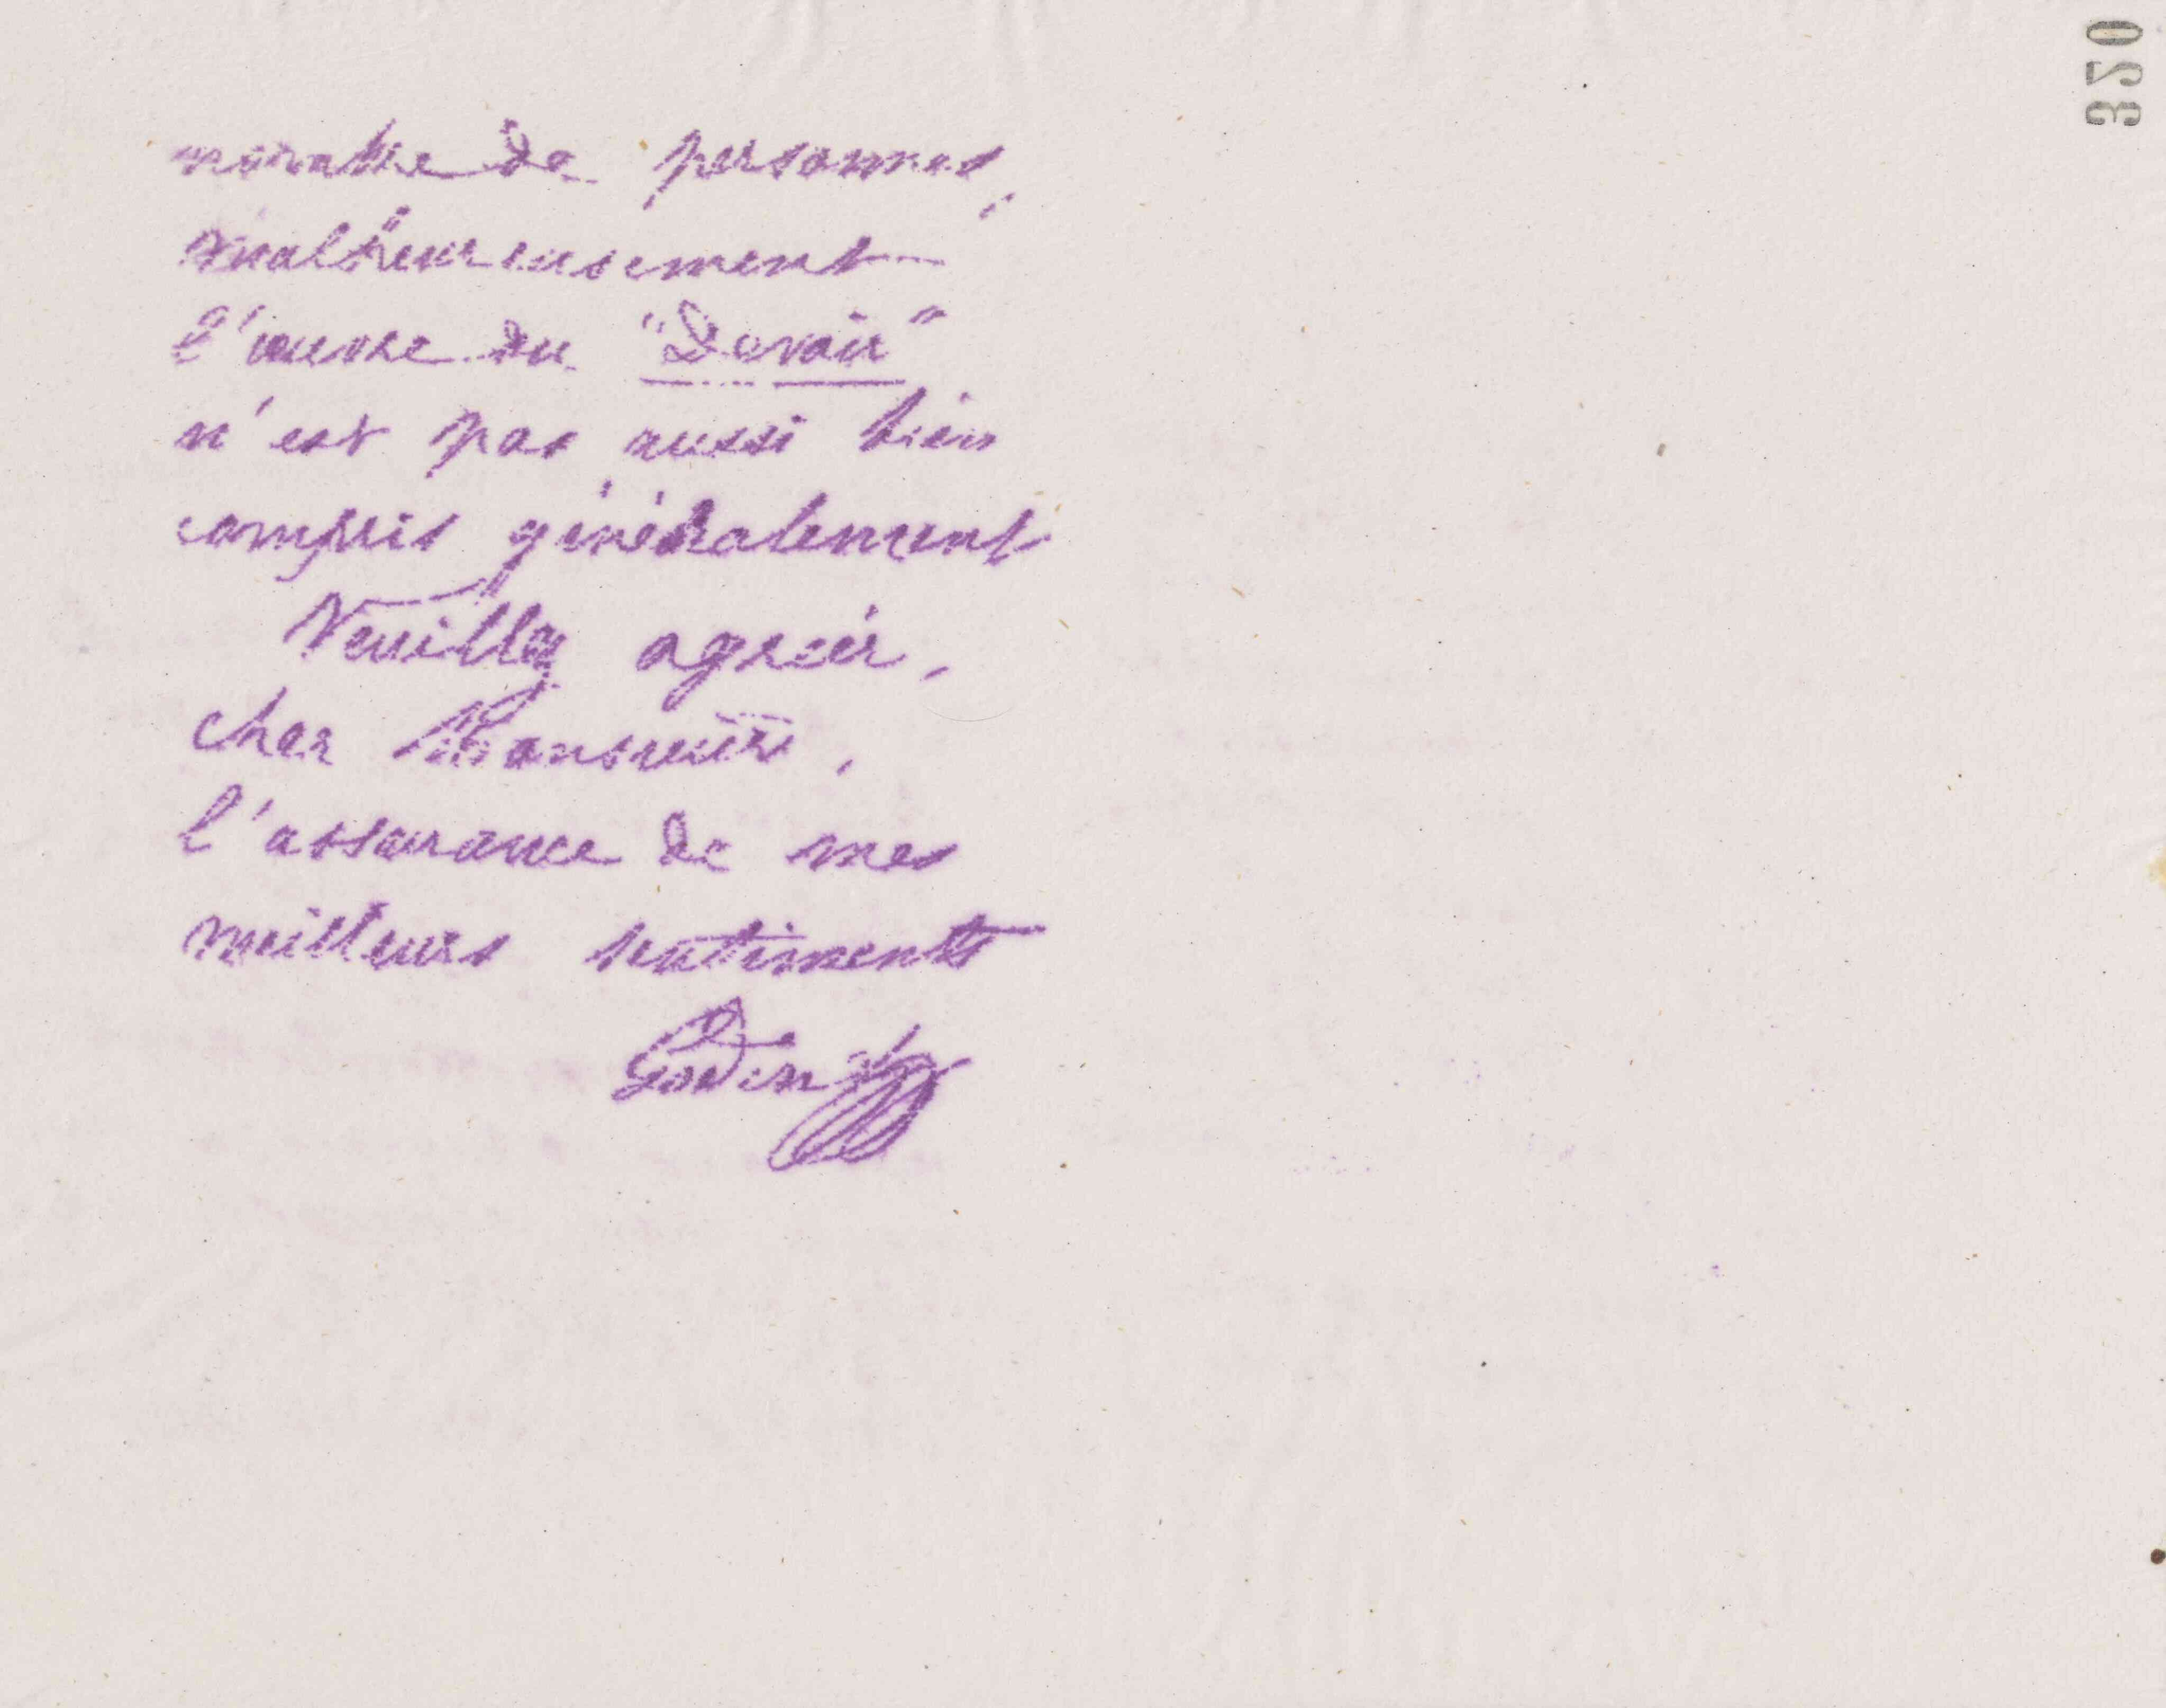 nombre de personnes,
malheureusement
l'œuvre du "Devoir"
n'est pas aussi bien
compris généralement
Veuillez agréer,
cher Monsieur,
l'assurance de mes
meilleurs sentiments
Godin
320